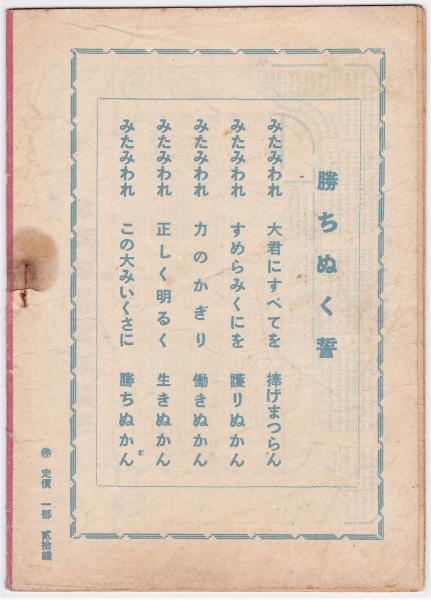 勝ちぬく誓
みたみわれ 大君にすべてを 捧げまつらん
みたみわれ すめらみくにを 護りぬかん
みたみわれ 力のかぎり 働きぬかん
みたみわれ 正しく明るく 生きぬかん
みたみわれ この大みいくさに 勝ちぬかん
定價 一部 貳拾錢